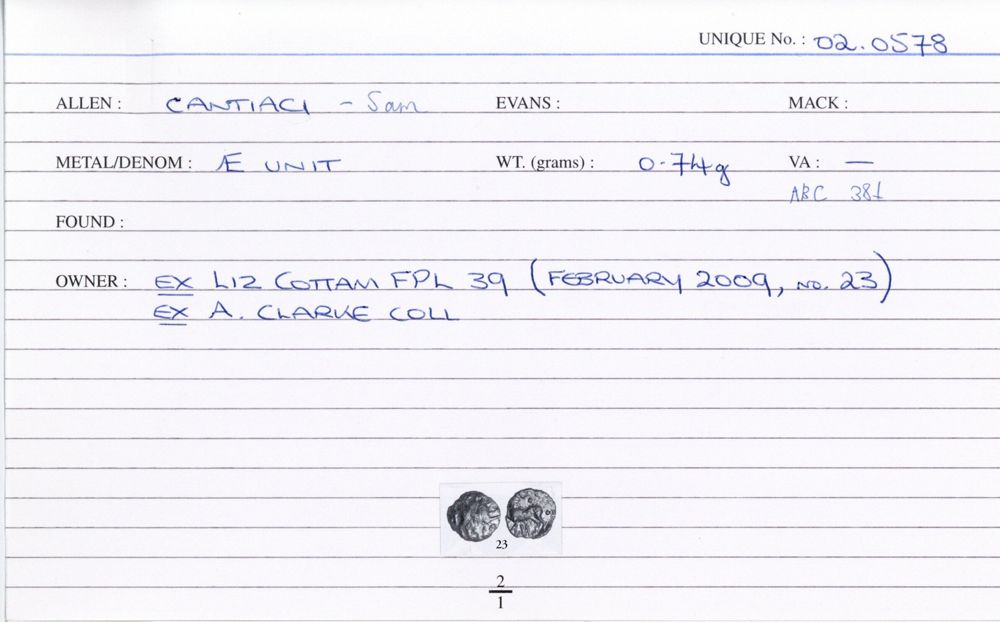 UNIQUE No. : 02.0578
ALLEN : CANTIACI - Sam EVANS : MACK :
METAL/DENOM : Æ UNIT WT. (grams) : 0.74g VA : —
ABC 381
FOUND :
OWNER : EX LIZ COTTAM FPL 39 (FEBRUARY 2009, NO. 23)
EX A. CLARKE COLL
23
2
1